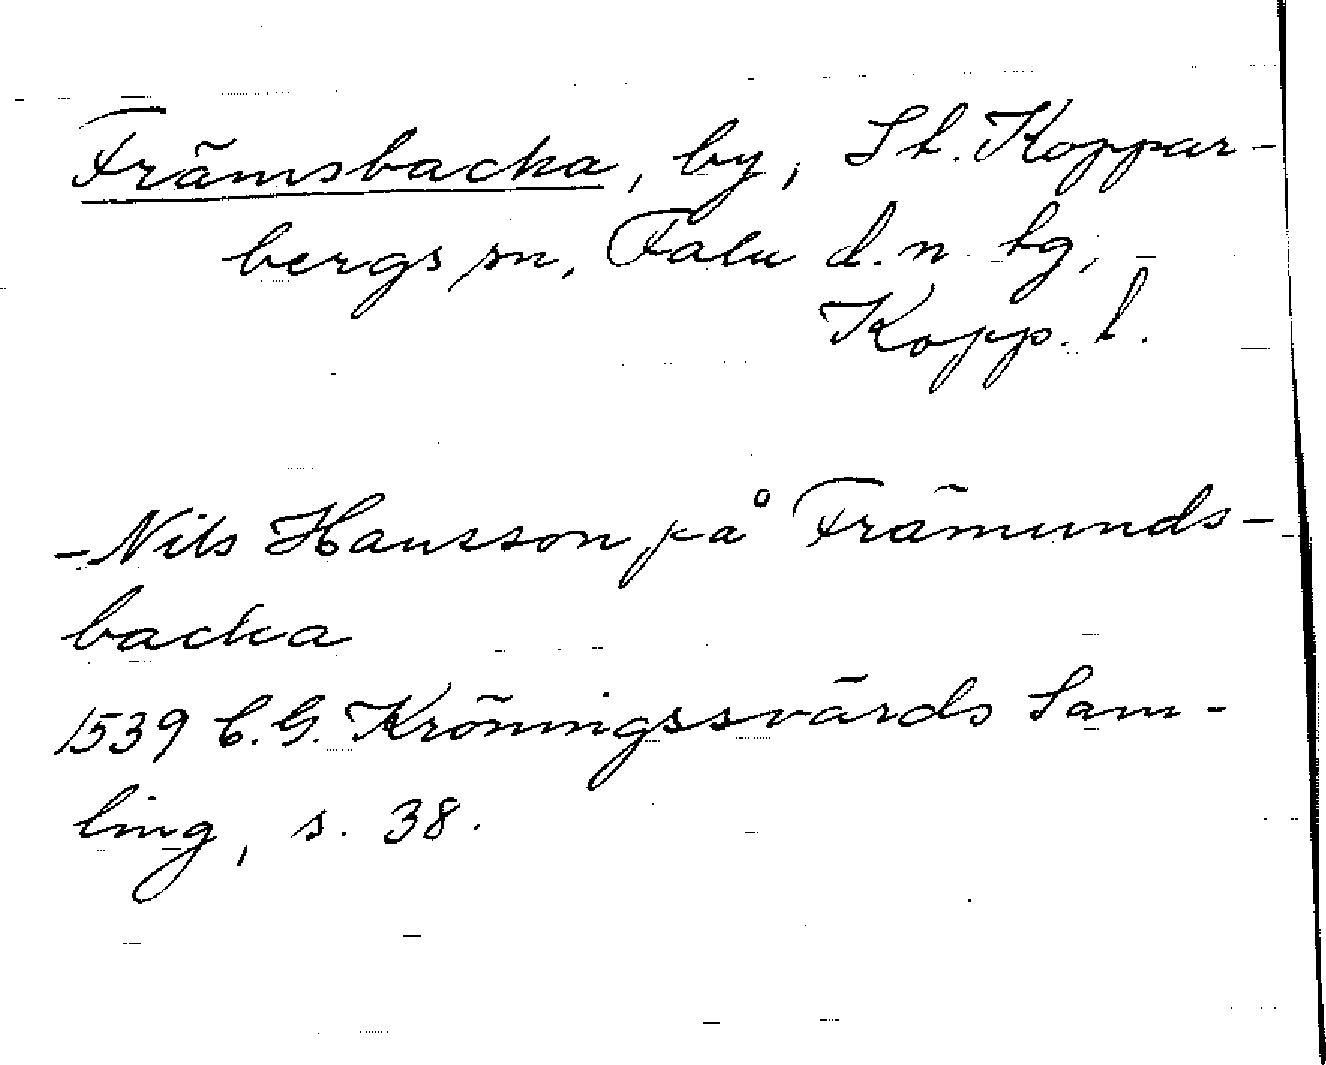 Främsbacka, by, St. Koppar-
bergs sn, Falu d.n. tg,
Kopp. l.
- Nils Hansson på Främunds-
backa
1539 C.G. Kröningssvärds Sam-
ling, s. 38.